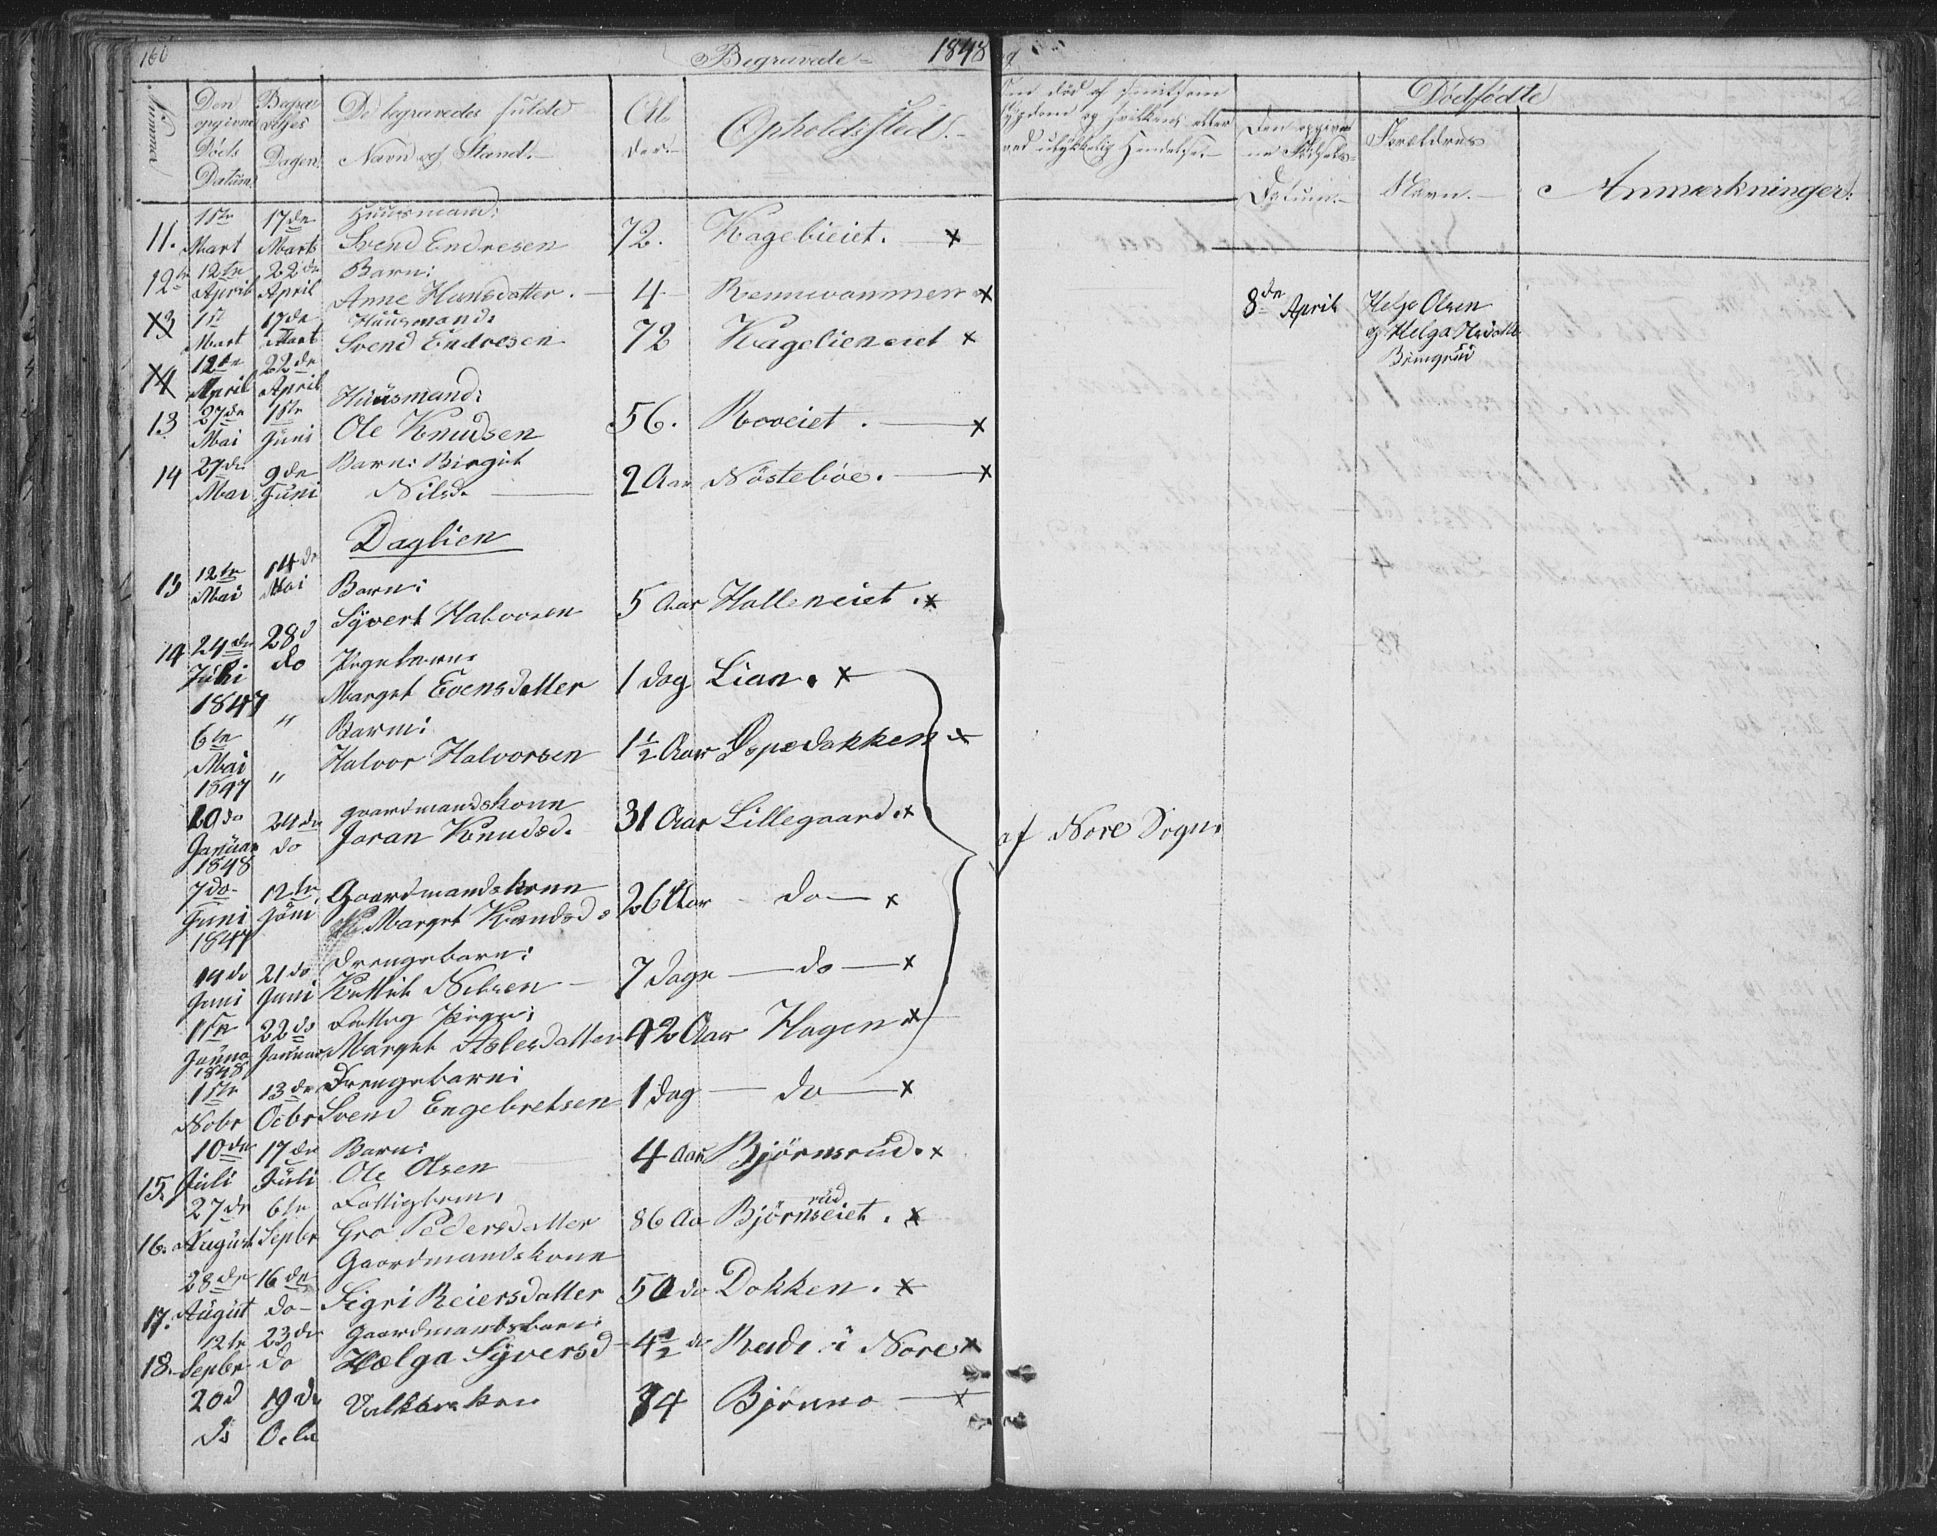 160
Begravede 1848
Nummer
Den opgivne Døds Datum.
Begravelses Dagen.
De begravedes fulde Navn og Stand.
Alder.
Opholdssted.
Om død af smitsom Sygdom og hvilken eller ved ulykkelig Hendelse.
Dødfødte
Den opgivne Fødsels-Datum.
Forældrenes Navn.
Anmærkninger.
11. 1ste Mart 17de Marts Huusmand: Svend Endresen 72. Kagelieiet. x
12te 12te April 22de April Barn: Anne Hansdatter. 4 x
8de April Helge Olsen og Helga
13 1ste Mart 17de Mart Huusmand: Svend Endresen 72 Kagelieneiet x
14 12te April 22de April
13 27de Mai 1ste Juni Huusmand: Ole Knudsen 56. Roveiet. x
14 27de Mai 9de Juni Barn: Birgit Nilsd. 2 Aar Nöstebøe. x
Daglien
13 12te Mai 14de Mai Barn: Syvert Halvorsen 5 Aar Halleneiet. x
14 24de Juli 1847 28d do Pigebarn: Marget Evensdatter 1 dag Lian. x
6te Mai 1847 " Barn: Halvor Halvorsen 1½ Aar Ospedokken x
20de Januar 1848 24de do Gaardmandskone Joran Knudsd. 31 Aar Lillegaard. x
af Nore Sogn.
7de Juni 1847 12te Juni Gaardmandskone Marget Knudsd. 26 Aar do x
19de Juni 21de Juni Drengebarn: Kittil Nilsen 7 dage do x
1ste Januar 1848 22de Januar Fattig Pige: Marget Aslesdatter 42 Aar Hagen x
1ste Nobr 13de Octbr Drengebarn: Svend Engebretsen 1 dag do x
15. 10de Juli 17de Juli Barn: Ole Olsen 4 Aar Bjørnsrud. x
16. 27de August 6te Septbr Fattiglem: Gro Pedersdatter 86 Aa Bjørnsrudeiet. x
17. 28de August 16de do Gaardmandskone Sigri Reiersdatter 50 do Dokken. x
18. 12te Septbr 23de do Gaardmandsbarn: Helga Syversd 4½ do i Nore x
20d do 19de Octbr 84 x